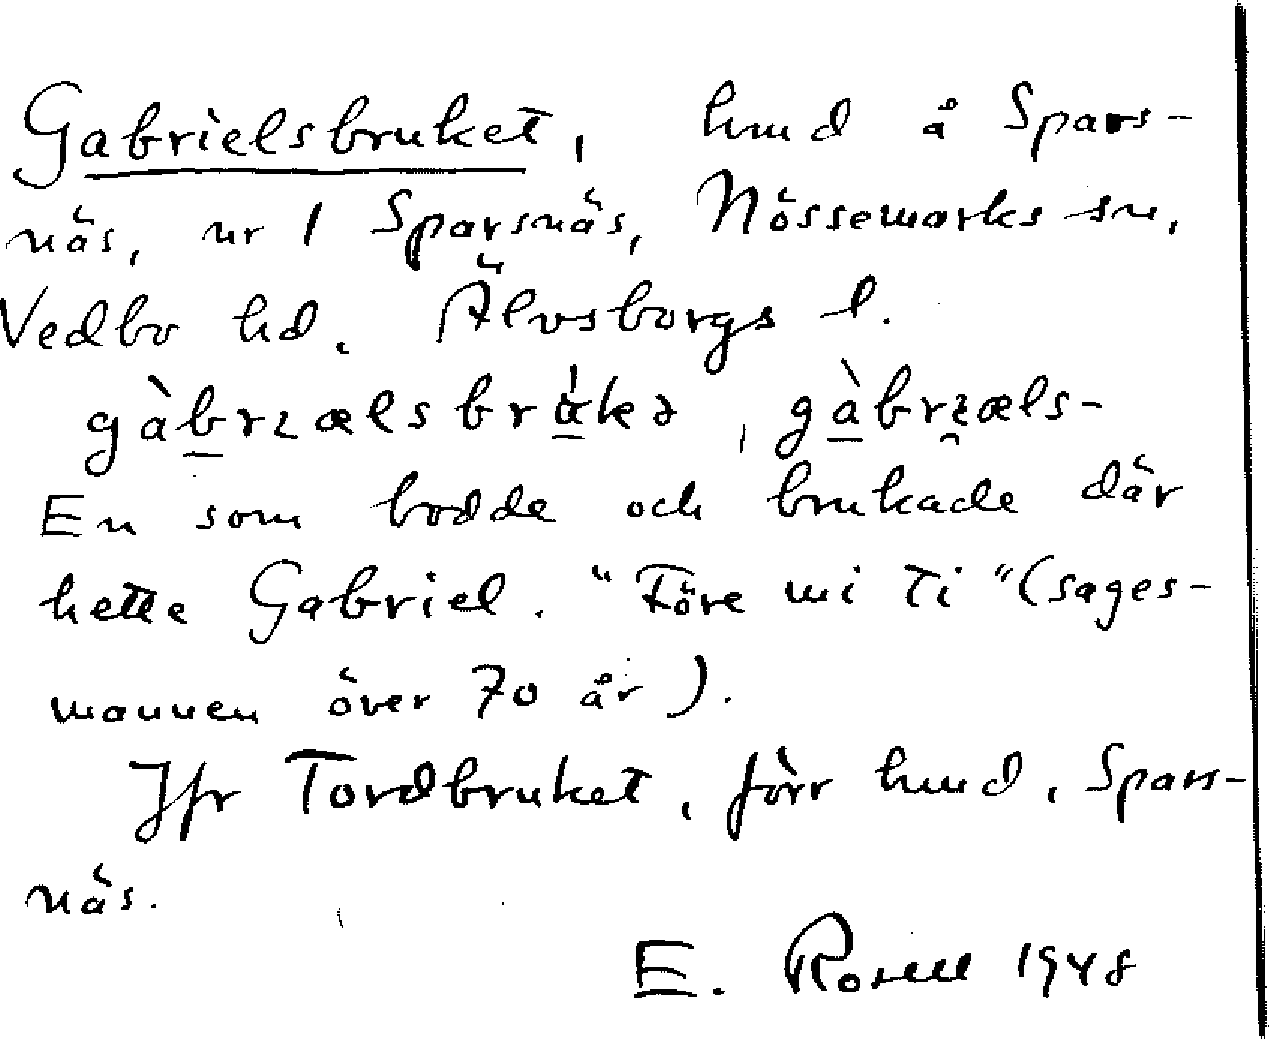 Gabrielsbruket, hmd å Spars-
näs, nr 1 Sparsnäs, Nössemarks sn,
Vedbo hd. Älvsborgs l.
gàbrɩælsbrùkə, gàbrɩ̯æls-
En som bodde och brukade där
hette Gabriel. "Före mi ti" (sages-
mannen över 70 år).
Jfr Tordbruket, förr hmd, Spars-
näs.
E. Rosell 1948